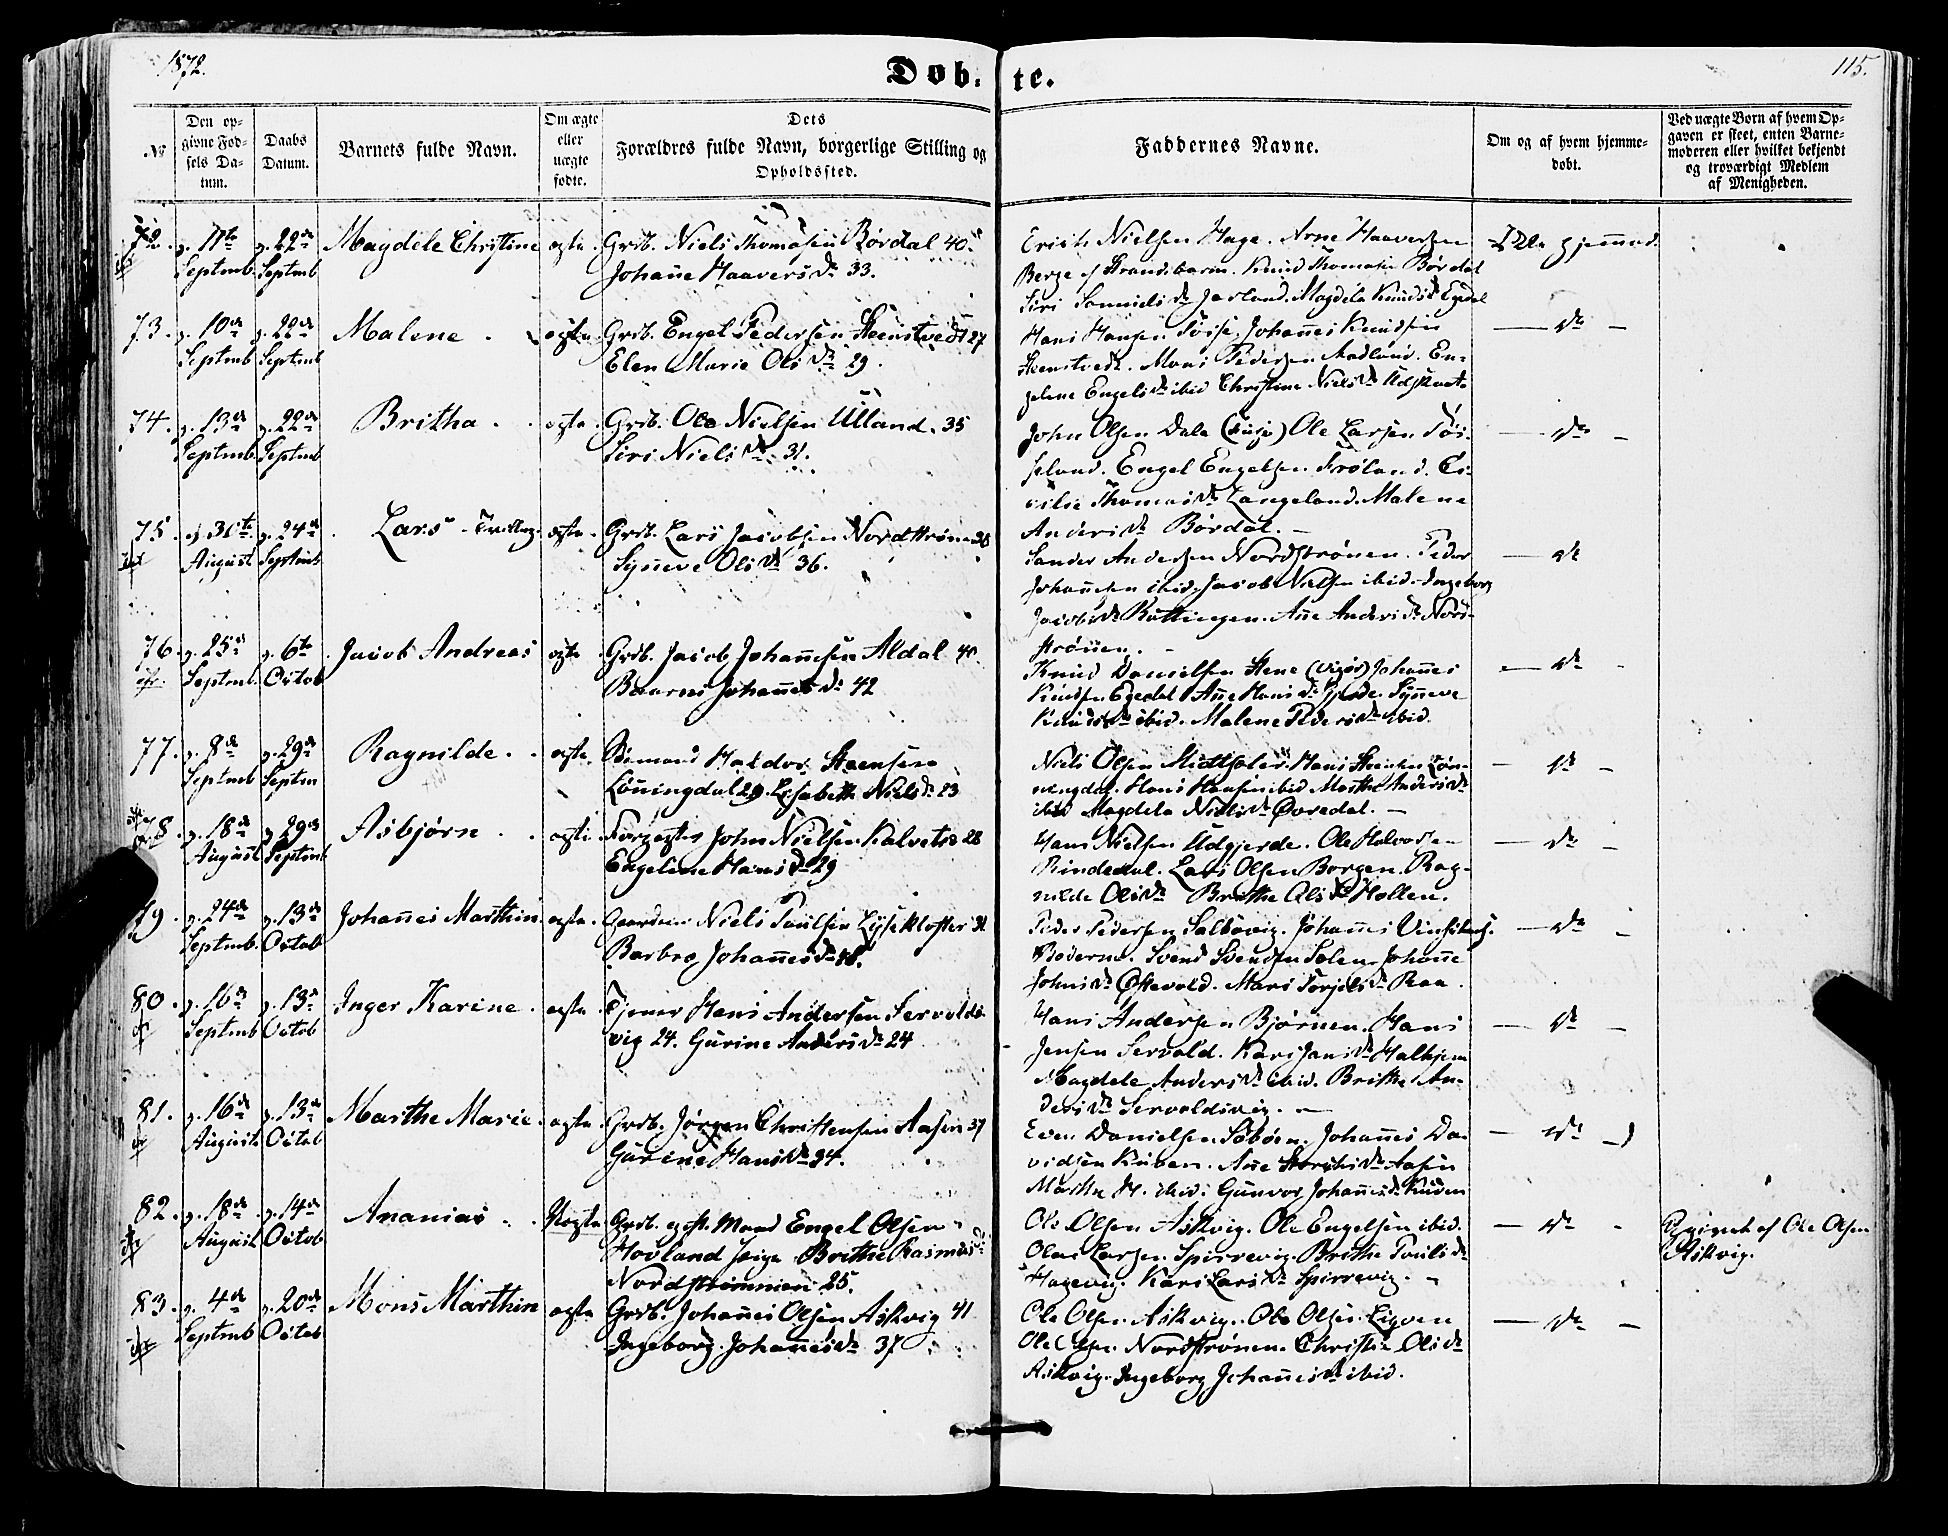 1872.
Døb. te.
115.
No
Den op-
givne Fød-
sels Da-
tum.
Daabs
Datum.
Barnets fulde Navn.
Om ægte
eller
uægte
fødte.
Dets
Forældres fulde Navn, borgerlige Stilling og
Opholdssted.
Faddernes Navne.
Om og af hvem hjemme-
døbt.
Ved uægte Børn af hvem Op-
gaven er skeet, enten Barne-
moderen eller hvilket bekjendt
og troværdigt Medlem
af Menigheden.
72. d. 11te d. 22de Magdele Christine ægte. Grdb. Niels Thomasen Børdal 40.
Septmb Septmb Johane Haavers Dr 33.
Erich Nielsen Hage. Arne Haaversen
Berge af Strandebarm. Knud Thomasen Børdal
Siri Samuels Dr Magdela Knuds Dr Egedal
73. d. 10de d. 22de Malene. ægte. Grdb. Engel Pedersen Steenstvedt 27
Septmb Septmb Elen Marie Ols Dr 29.
Hans Hansen Johannes Knudsen
Steenstvedt. Mons Pedersen Madland. En-
gelene Engels Dr ibid Christine Niels Dr
— Dr —
74. d. 13de d. 22de Britha. ægte. Grdb. Ole Nielsen Ulland. 35
Septmb Septmb Siri Niels Dr 31.
John Olsen Dale (Fuse) Ole Larsen Tøs-
seland. Engel Engelsen Frøland. Ce-
cilie Thomas Dr Langeland. Malene
Anders Dr Børdal. —
— Dr —
75. d. 31te d. 24de Lars - Tvilling. ægte. Grdb. Lars Jacobsen Nordstrøne 38
August Septmb Synneve Ols Dr 36.
Sander Andersen Nordstrønen. Peder
Johannesen ibid. Jacob Nielsen ibid. Ingeborg
Jacobs Dr Røttingen. Ane Anders Dr Nord-
strønen. —
— Dr
76. d. 25de d. 6te Jacob Andreas ægte Grdb. Jacob Johannesen Aldal 40.
Septmb. Octob Johannes Dr 42
Knud Danielsen Johannes
Knudsen Egedal Ane Hans Dr Gjerde. Synneve
Knuds Dr ibid. Malene Peders Dr ibid.
— Dr -
77. d. 8de d. 29de Ragnilde. ægte. Sømand Haldor Steensen
Septmb Septm Løningdal 29. Lisabeth Niels Dr 23
Niels Olsen Hans Steensen Løn-
ningdal. Hans Hansen ibid Marthe Anders Dr
ibid Magdela Niels Dr Øvredal. —
— Dr —
78. d. 18de d. 29de Asbjørn. ægte. John Nielsen Kalvetræ 28
August Septmb Engelene Hans Dr 29
Hans Nielsen Udgjerde. Ole Halvorsen
Rindedal. Lars Olsen Borgen. Rag-
nilde Ols Dr Brithe Ols Dr Hollen.
— Dr —
79. d. 24de d. 13de Johannes Marthin. ægte. Gaardm Niels Poulsen Lyseklostter 31
Septmb. Octob Barbro Johannes Dr 48.
Peder Pedersen Salbøvig. Johannes
Svend Svendsen Solen. Johane
Johns Dr Østevold. Mari Torjels Dr Raa.
— Dr —
80. d. 16de d. 13de Inger Karine. ægte. Tjener Hans Andersen Servolds-
Septmb Octob vig 24. Gurine Anders Dr 24
Hans Andersen Bjørnen. Hans
Jensen Servold. Kari Jans Dr Halhjem
Magdele Anders Dr ibid. Brithe An-
ders Dr Servoldsvig. —
— Dr —
81. d. 16de d. 13de Marthe Marie. ægte. Grdb. Jørgen Christensen Aasen 37
August Octob Gurine Hans Dr 34.
Even Danielsen Søbøen. Johannes Da-
vidsen Kuven. Ane Dr Aasen
Marthe H. ibid. Gunvor Johannes Dr Kuven
— Dr —
82. d. 18de d. 14de Ananias. Uægte. Grdb. gift Mand Engel Olsen
August Octob Hovland Pige Brithe Rasmus Dr
Nordstrømmen 25.
Ole Olsen Askvig. Ole Engelsen ibid.
Olai Larsen Spirrevig. Brithe Pouls Dr
Hagevig. Kari Lars Dr Spirrevig. —
— Dr -
Opgivet af Ole Olsen
Askvig.
83. d. 4de d. 20de Mons Marthin ægte Grdb. Johannes Olsen Askvig 41
Septmb Octob Ingeborg Johannes Dr 37
Ole Olsen Askvig. Ole Olsen Ligven
Ole Olsen Nordstrønen. Christi Ols Dr
Askvig. Ingeborg Johannes Dr ibid.
— Dr —